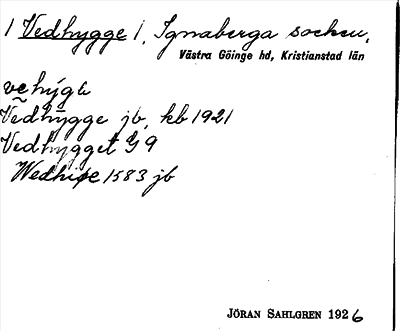 / Vedhygge /, Ignaberga socken,
Västra Göinge hd, Kristianstad län
vehýga
Vedhygge jb, kb 1921
Vedhygget G 9
Wedhige 1583 jb
JÖRAN SAHLGREN 1926